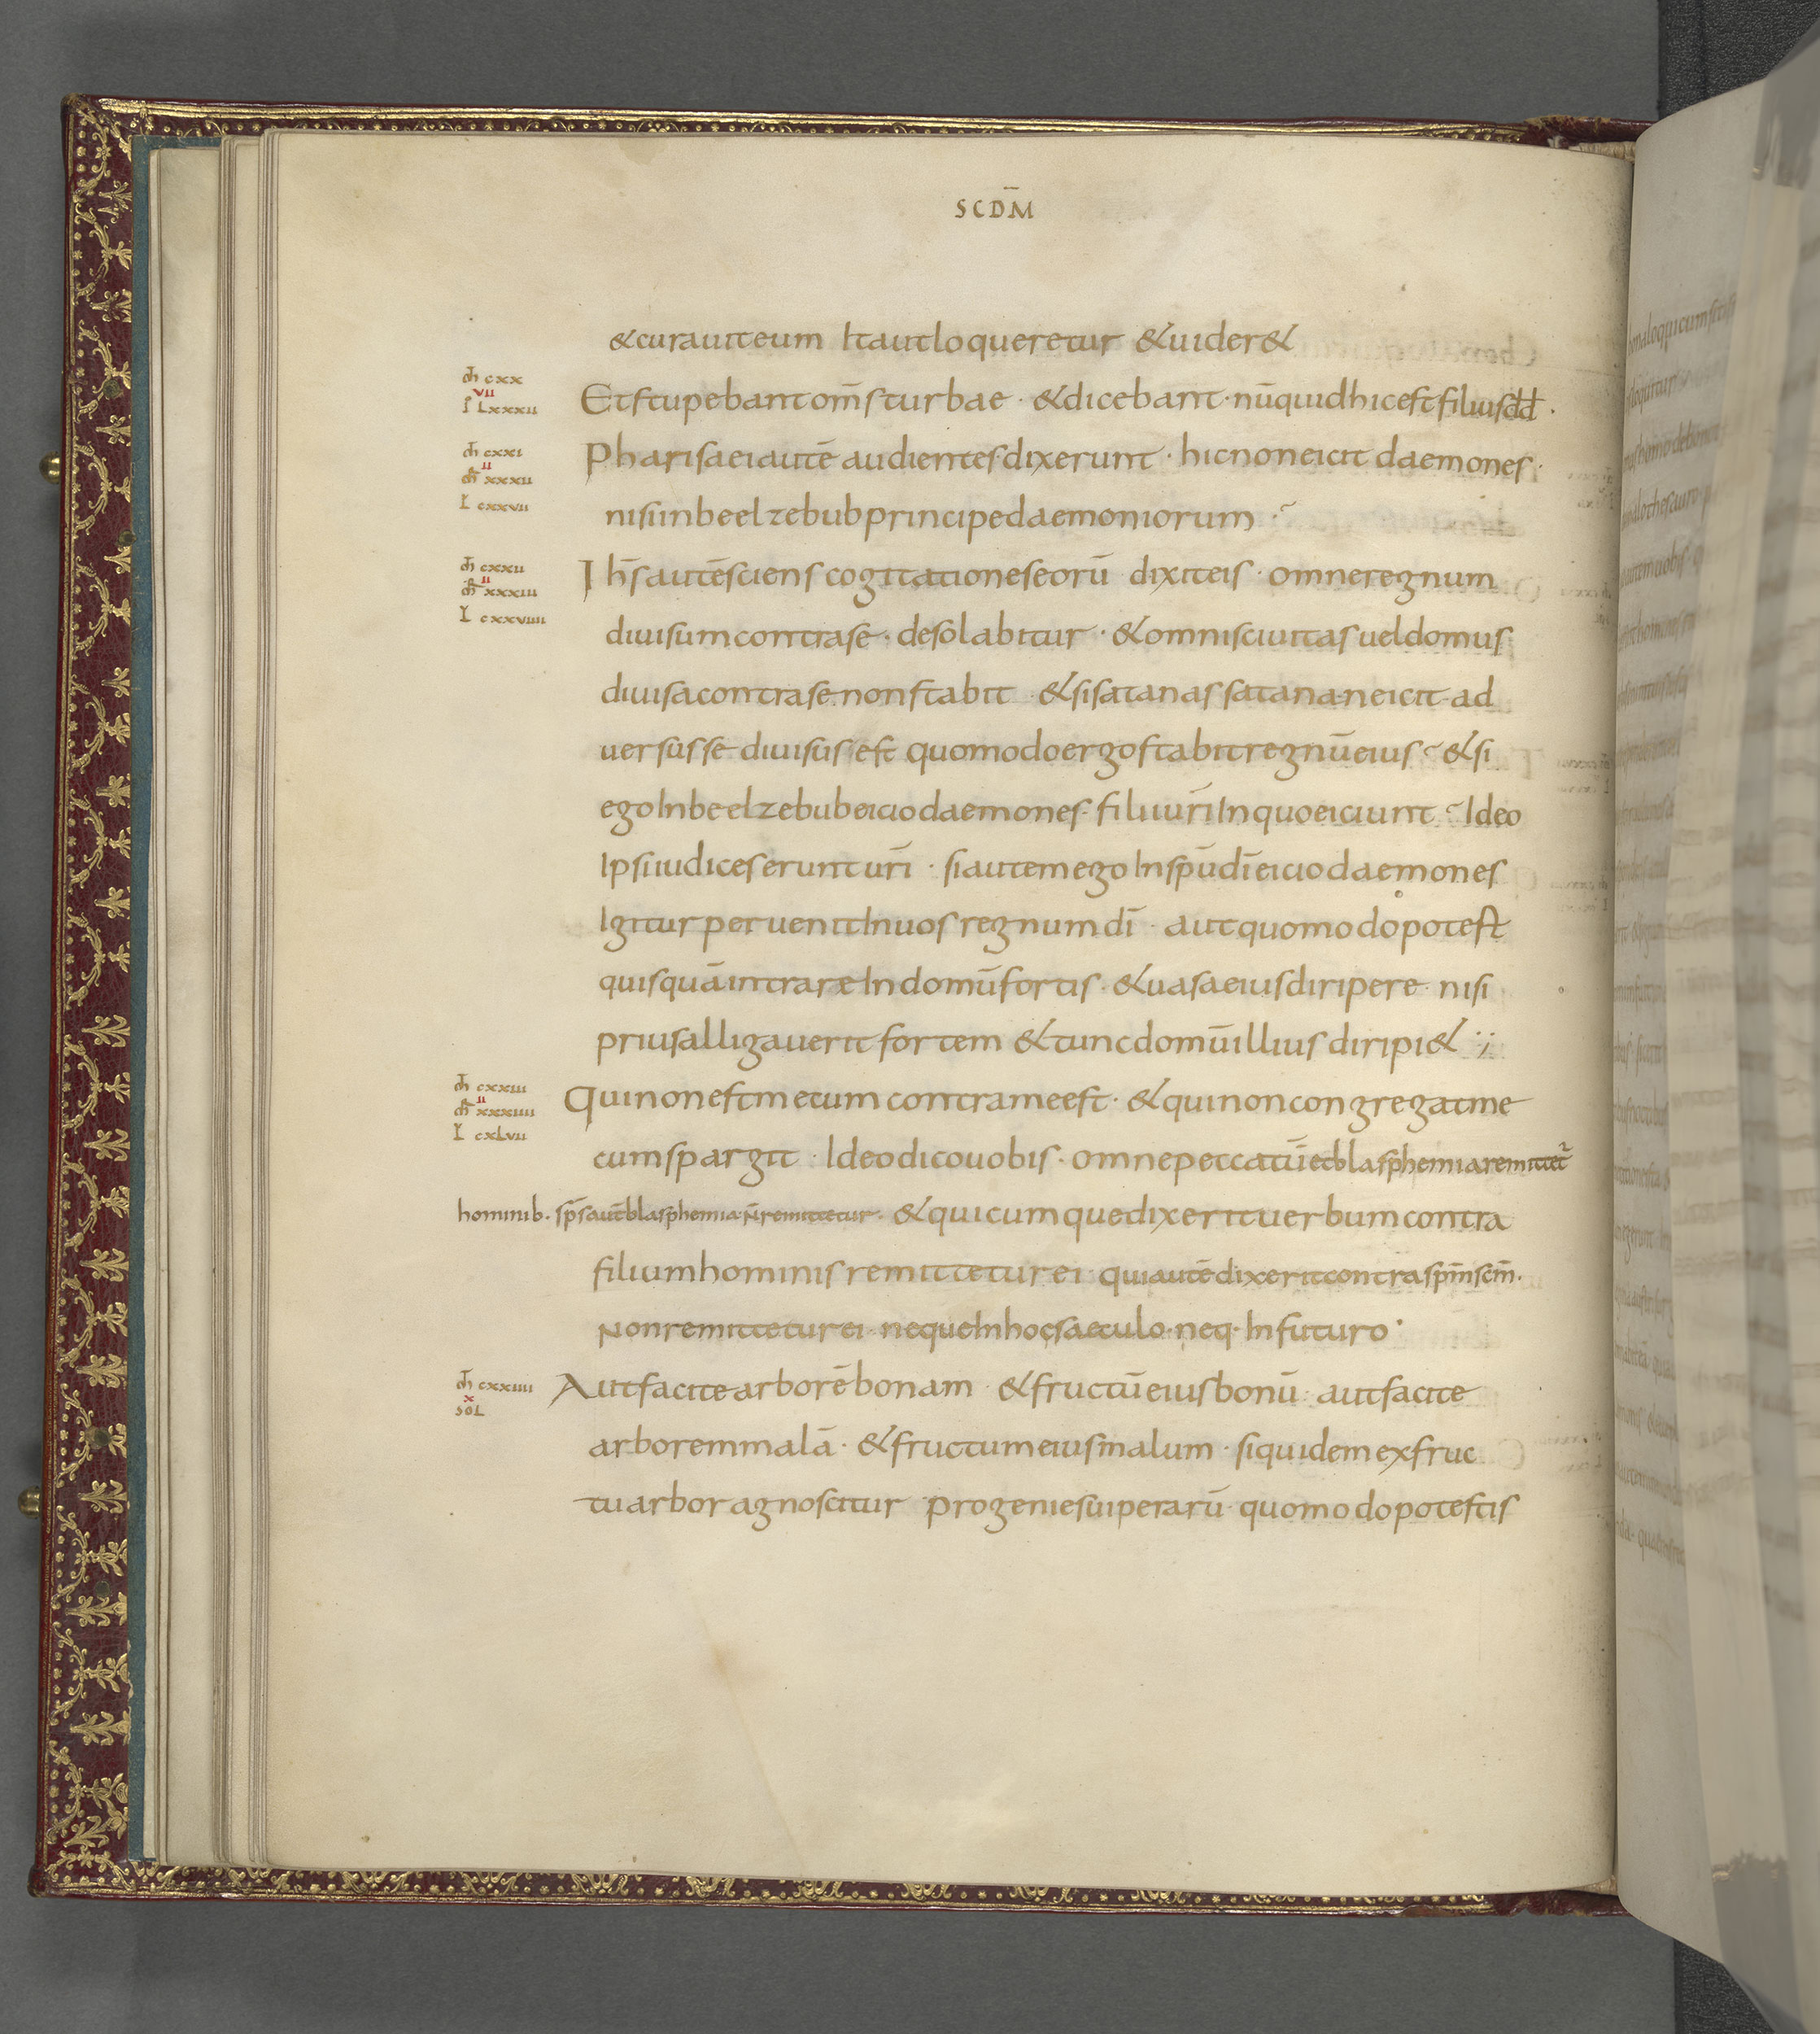 SCDM̄
&curauiteum Itautloqueretur &uider&
m̄ cxx
vii
l̄ Lxxxii
Etstupebantom̄sturbae · &dicebant · nūquidhicestfiliusdd ·
m̄ cxxi
ii
m̄r xxxii
L cxxvii
Pharisaeiautē audientes·dixerunt · hicnoneicit daemones ·
nisiinbeelzebubprincipedaemoniorum ·
m̄ cxxii
ii
m̄r xxxiii
L cxxviiii
Ih̄sautēsciens cogitationeseorū dixiteis · omneregnum
diuisumcontrase · desolabitur · &omnisciuitas ueldomus
diuisacontrase·nonstabit · &sisatanas satana·neicit·ad
uersusse diuisus·est quomodoergostabitregnūeius · &si
egoInbeelzebubeiciodaemones· filiiur̄iInquoeiciunt · Ideo
Ipsiiudiceserunt ur̄i · siautemegoInsp̄ud̄ieiciodaemones
IgiturperuenitInuosregnumd̄i · autquomodopotest
quisquāintrareIndomūfortis · &uasaeiusdiripere · nisi
priusalligauerit fortem &tuncdomūillius diripi& ·,·
m̄ cxxiii
ii
m̄r xxxiiii
L cxLvii
Quinonestmecumcontrameest · &quinoncongregatme
cumspargit · Ideodicouobis · omnepeccatūetblasphemiaremittet᷑
hominib · sp̄sautēblasphemia·n̄remittetur · &quicumquedixerituerbumcontra
filiumhominisremittetur ei · quiautēdixeritcontrasp̄mscm̄ ·
Nonremitteturei · nequeInhocsaeculo·neq·Infuturo ·
m̄ cxxiiii
x
SOL
Autfacitearborēbonam · &fructūeiusbonū · autfacite
arboremmalā · &fructumeiusmalum · siquidemexfruc
tuarboragnoscitur progeniesuiperarū quomodopotestis